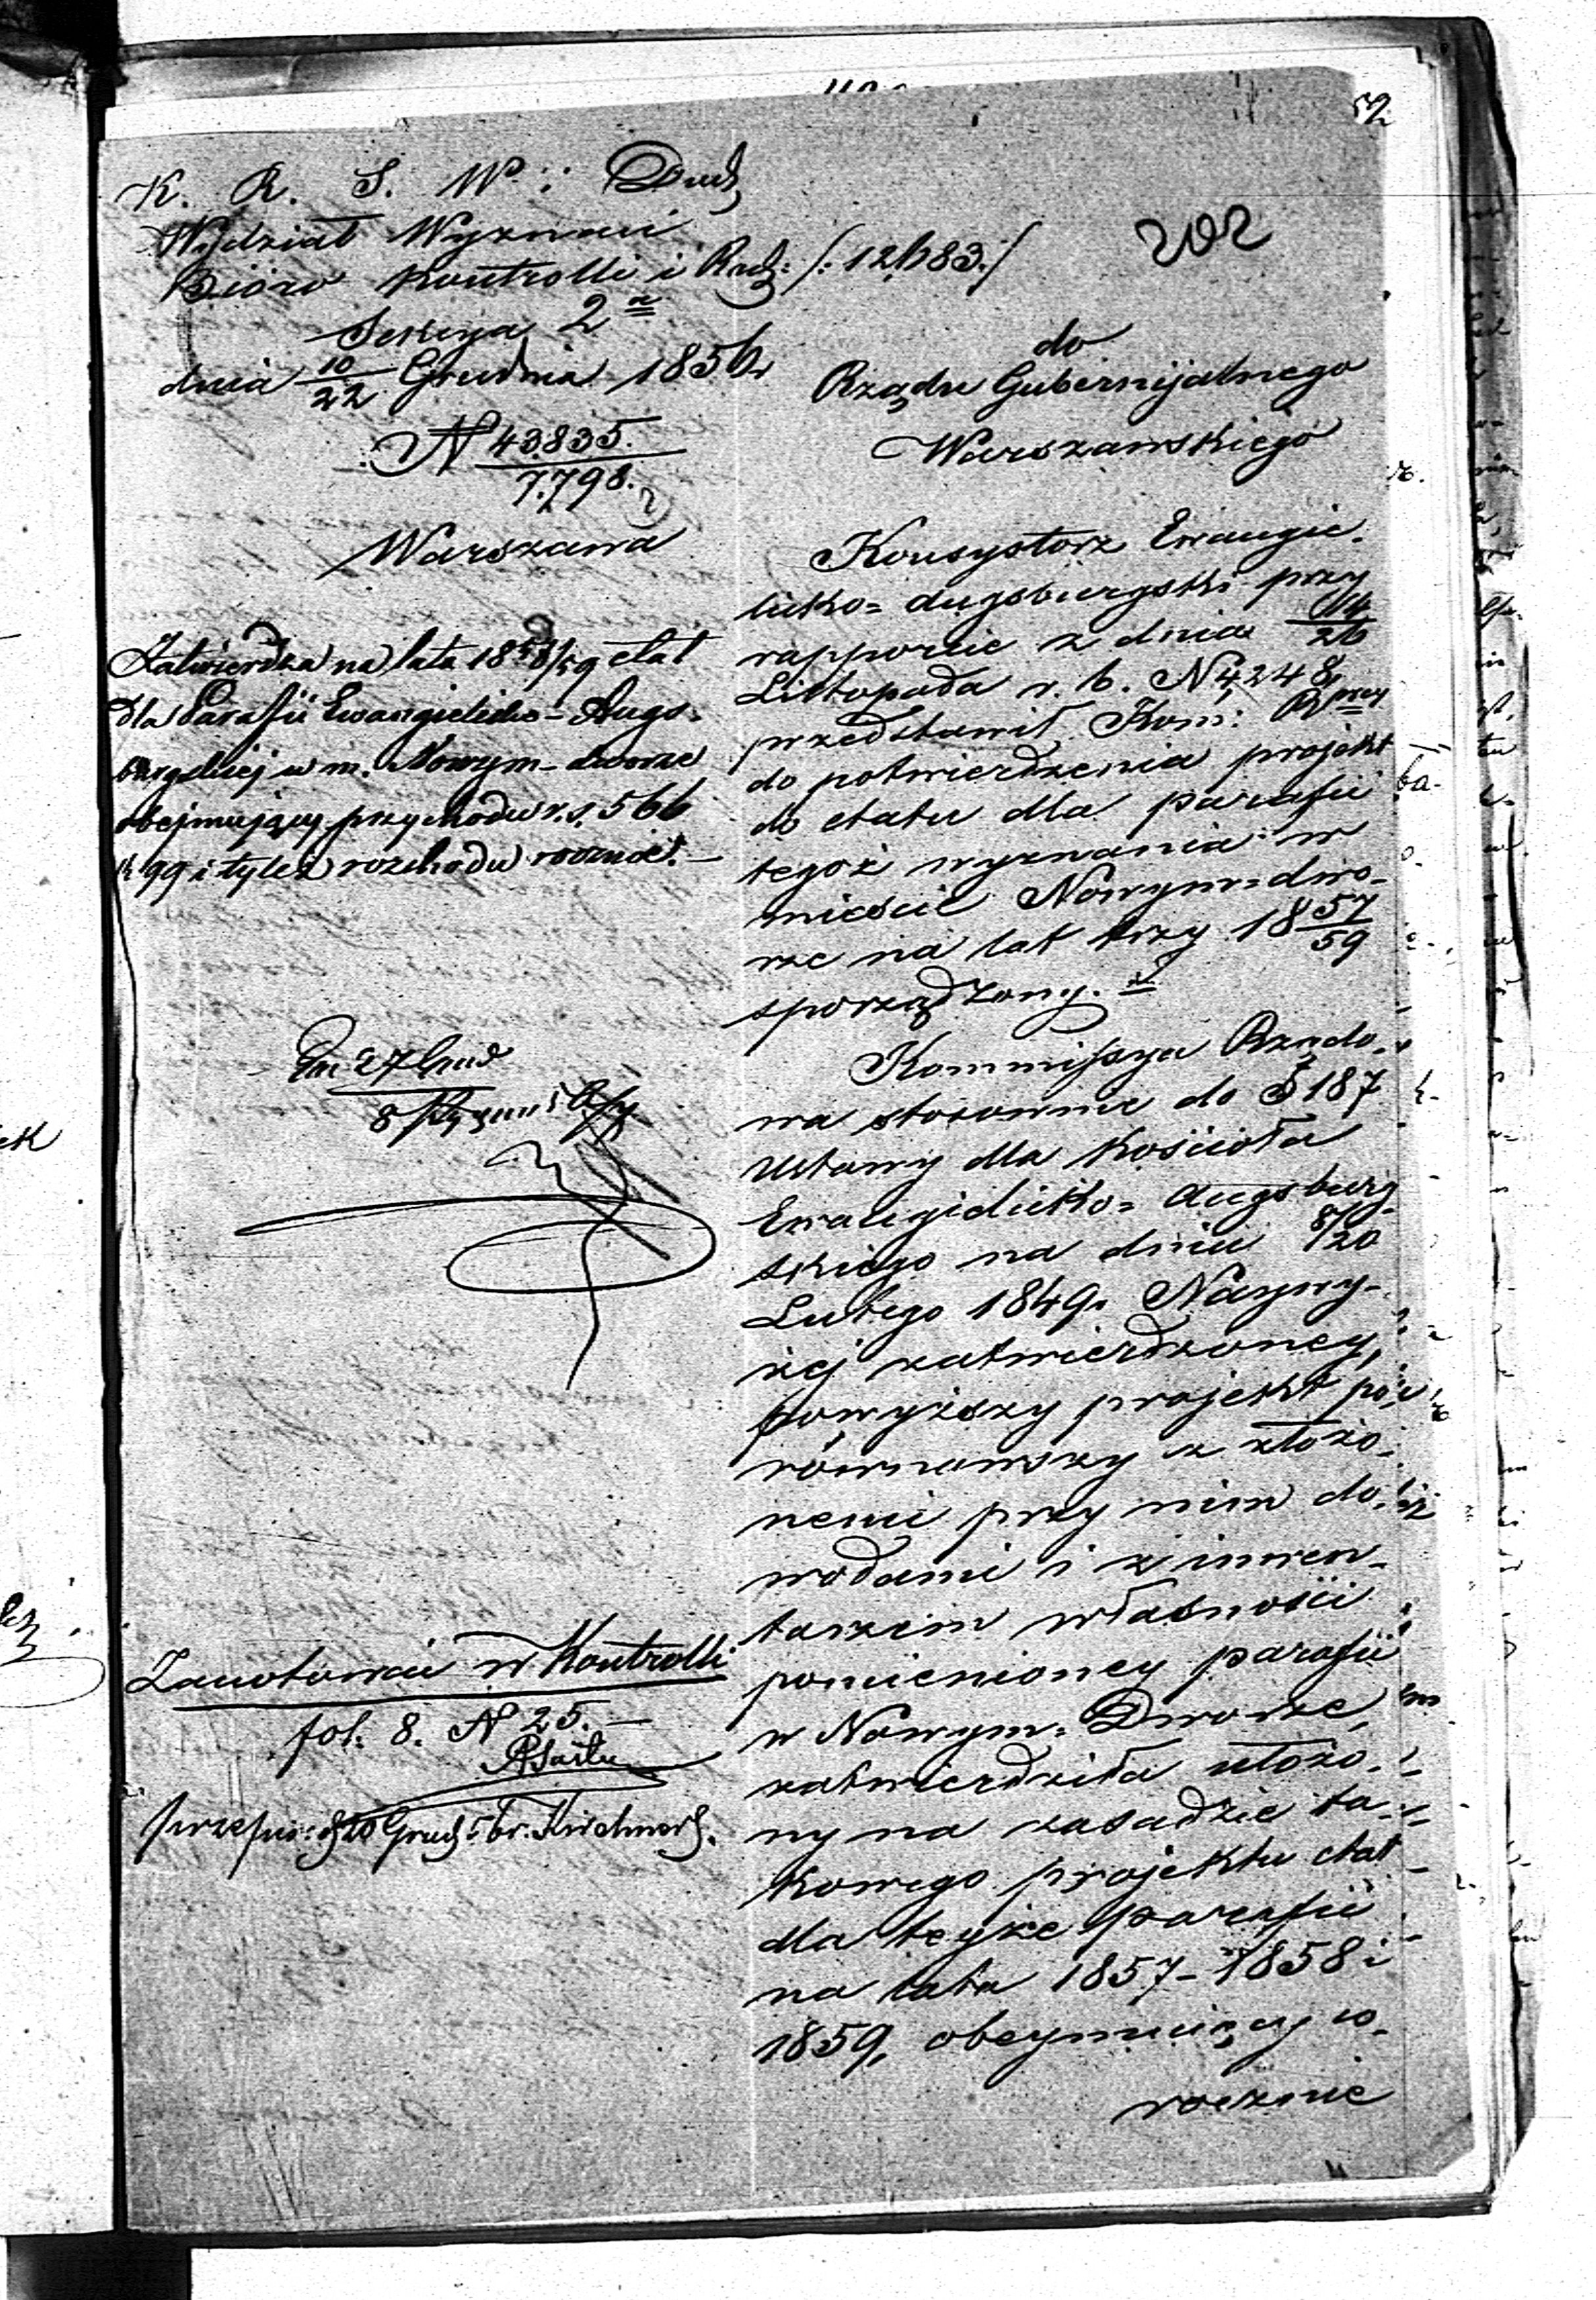 52
K. R. S. W. i Duch
Wydział Wyznań
Bióro Kontrolli i Rach: /:12683:/
202
Sekcya 2a
dnia 10/22 Grudnia 1856 r
N 43835./7.798.
Warszawa
Zatwierdza na lata 1857/59 etat
dla Parafii Ewangielicko-Augs-
burgskiej w m. Nowym-dworze
obejmujący przychodu r.s. 566
k 99 i tyleż rozchodu rocznie.—
27 Grud
8
Zanotowano w Kontrolli
fol. 8. N 25.—
przepis: Grud: br.
do
Rządu Gubernijalnego
Warszawskiego
Konsystorz Ewangie-
licko=Augsburgski przy
rapporcie z dnia 14/26
Listopada r. b. N 4248,
przedstawił Kom: Rowey
do potwierdzenia projekt
do etatu dla parafii
tegoż wyznania w
mieście Nowym=dwo-
rze na lat trzy 1857/59
sporządzony.
Kommissya Rządo-
wa stosownie do § 187
Ustawy dla Kościoła
Ewangielicko=Augsburg-
skiego na dniu 8/20
Lutego 1849 r. Naywy-
żej zatwierdzoney,
powyższy projekt po-
równawszy z złożo-
nemi przy nim do-
wodami i z inwen-
tarzem własności
pomienioney parafii
w Nowym=Dworze,
zatwierdziła ułożo-
ny na zasadzie ta-
kowego projektu etat
dla teyże parafii
na lata 1857-1858 i
1859, obeymuiący w-
rocznie